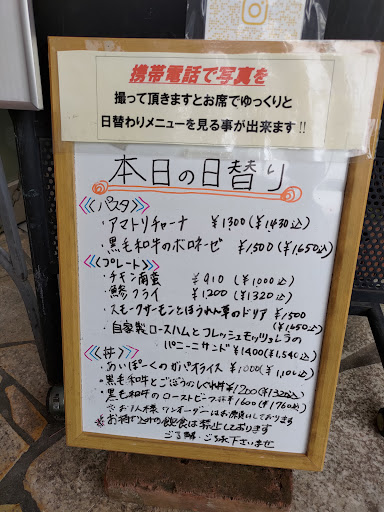 携帯電話で写真を
撮って頂きますとお席でゆっくりと
日替わりメニューを見る事が出来ます!!
本日の日替り
《パスタ》
・アマトリチャーナ ¥1300(¥1430込)
・黒毛和牛のボロネーゼ ¥1,500(¥1,650込)
《プレート》
・チキン南蛮 ¥910(¥1000込)
・鯵フライ ¥1,200(¥1320込)
・スモークサーモンとほうれん草のドリア ¥1,500
(¥1650込)
・自家製ロースハムとフレッシュモッツァレラの
パニーニサンド ¥1400(¥1,540込)
《丼》
・あいぽーくのガパオライス ¥1000(¥1,100込)
・黒毛和牛とごぼうのしぐれ丼 ¥1200(¥1320込)
・黒毛和牛のローストビーフ丼 ¥1600(¥1760込)
※お1人様 ワンオーダーはお願いしております
※お持ち込みの飲食は禁止しております
ご了解・ご了承下さいませ